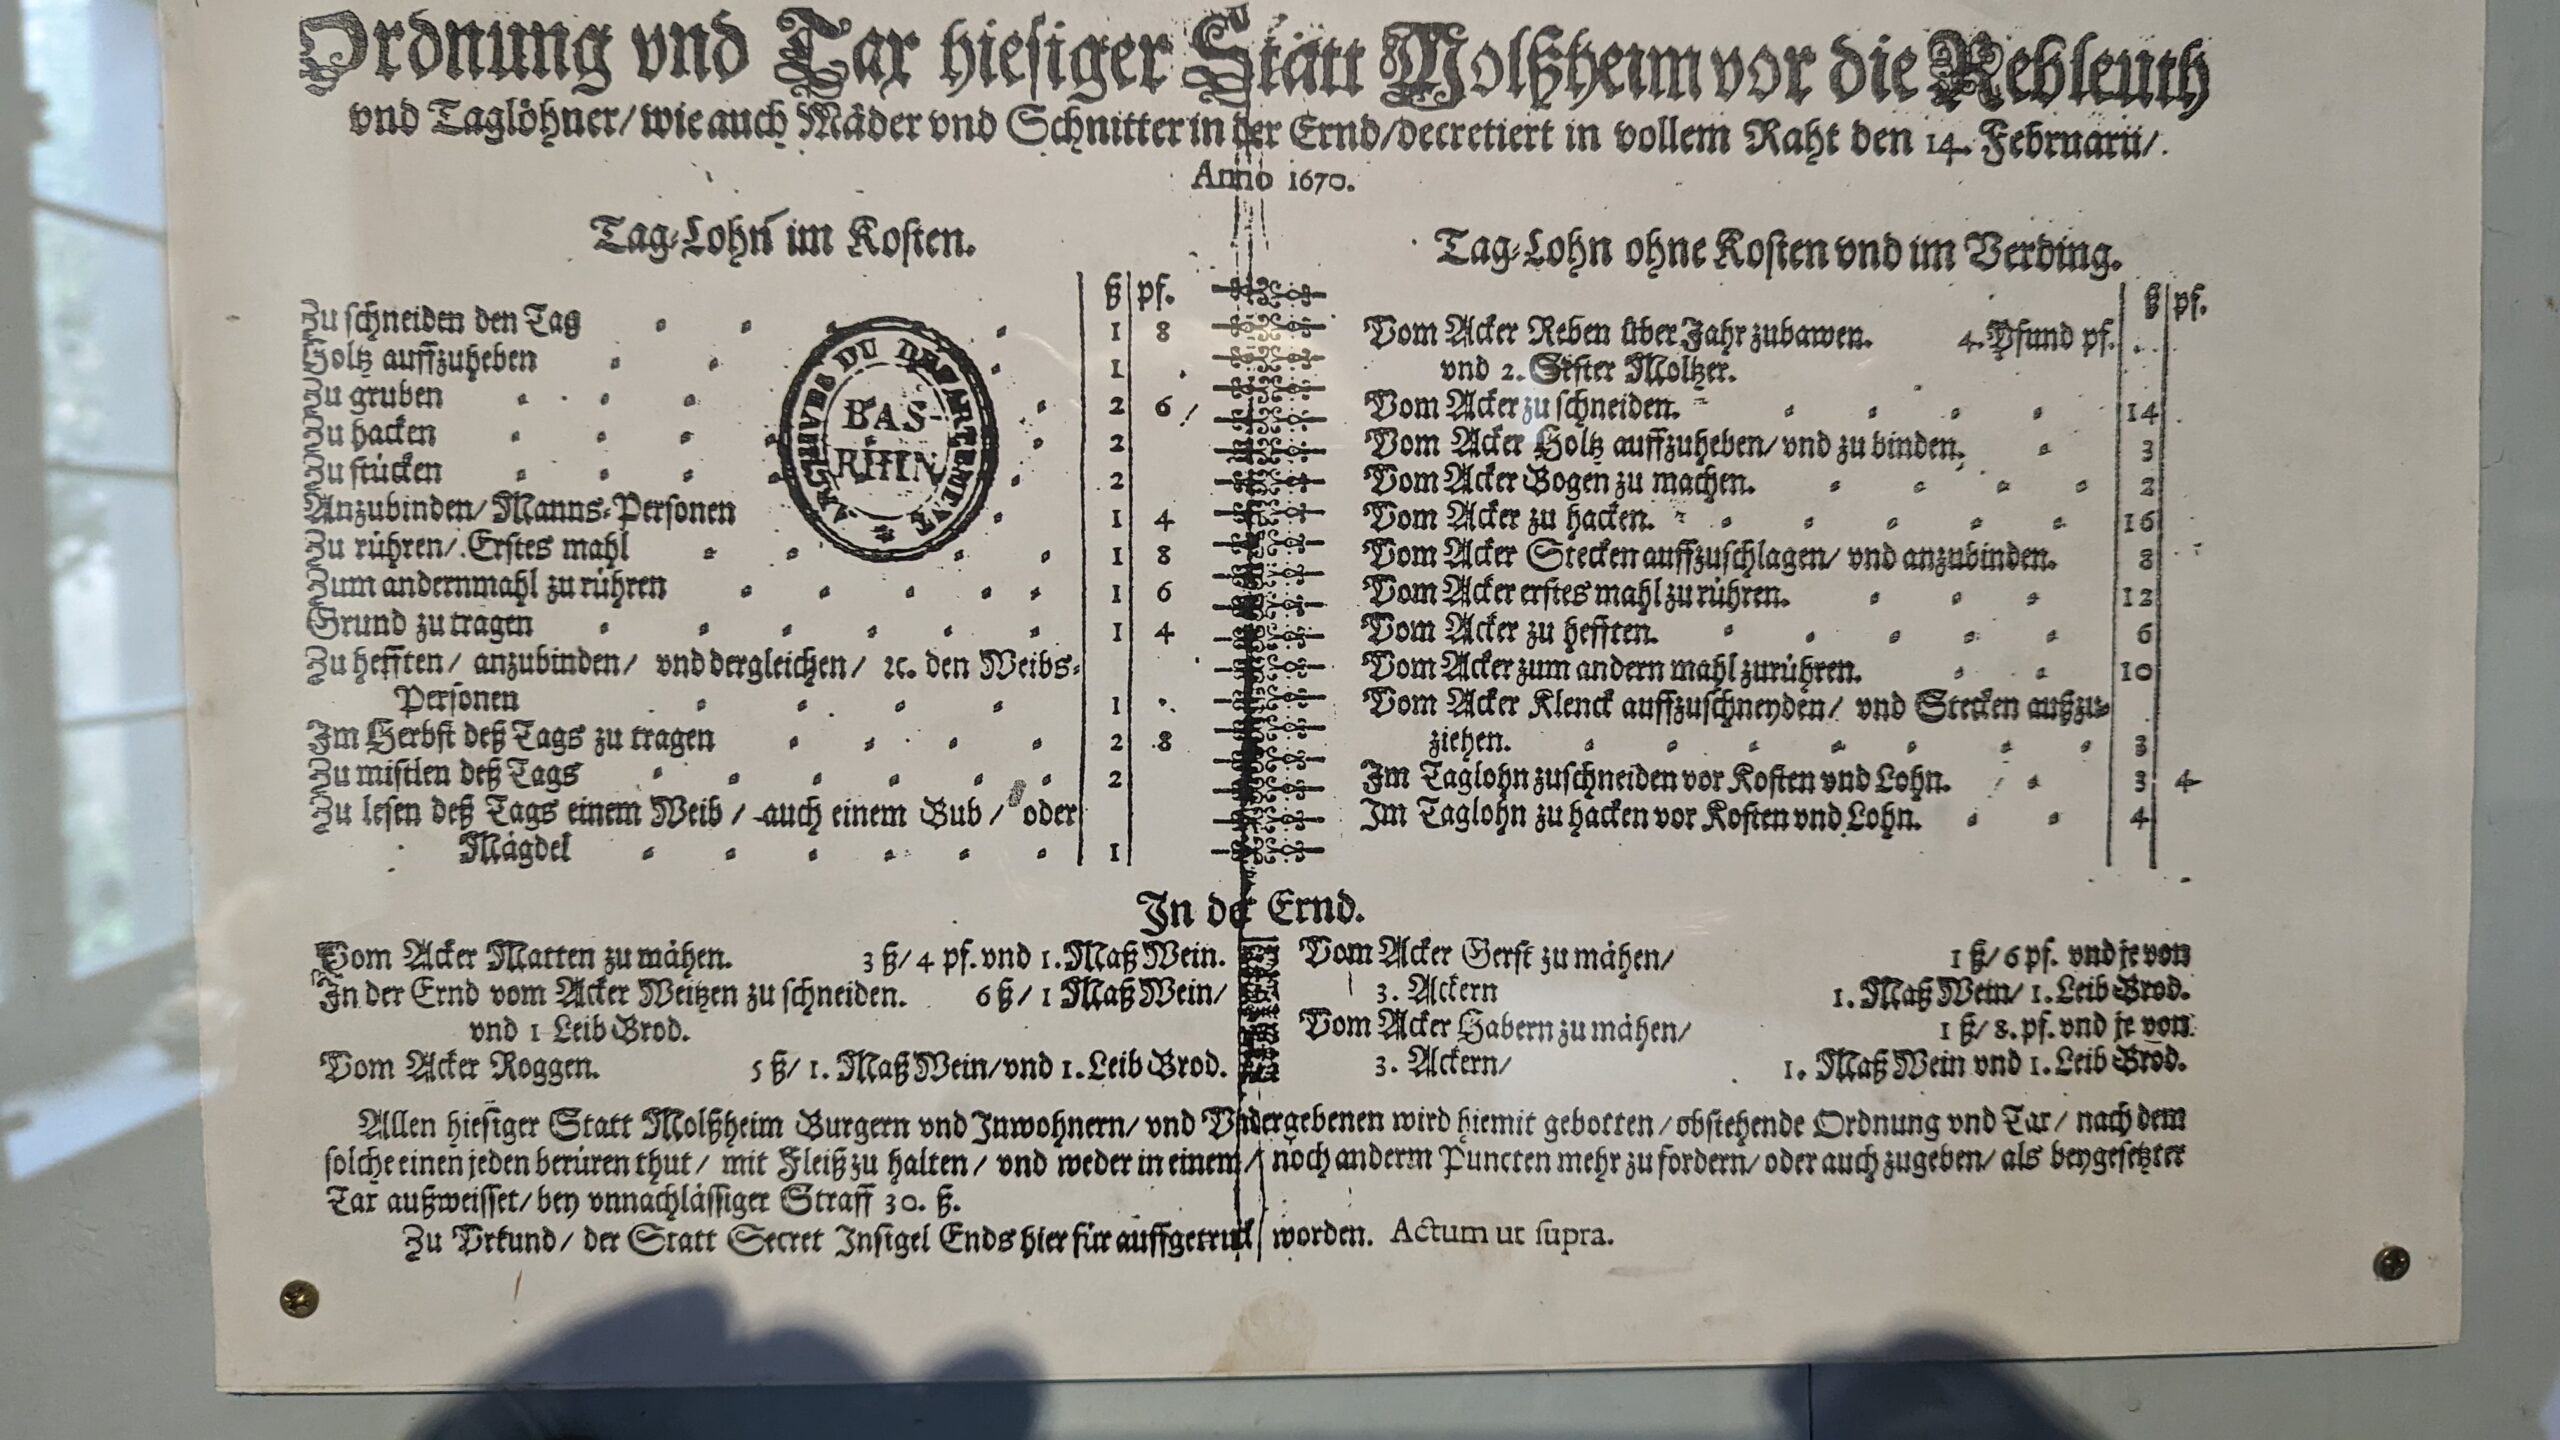 Ordnung vnd Tax hiesiger Statt Molßheim vor die Rebleuth
vnd Taglöhner/ wie auch Mäder vnd Schnitter in der Ernd/ decretiert in vollem Raht den 14. Februarii/
Anno 1670.
Tag-Lohn im Kosten.
ß pf.
Zu schneiden den Tag 1 8
Holtz auffzuheben 1
Zu gruben 2 6
Zu hacken 2
Zu stücken 2
Anzubinden/ Manns-Personen 1 4
Zu rühren/ Erstes mahl 1 8
Zum andernmahl zu rühren 1 6
Grund zu tragen 1 4
Zu hefften/ anzubinden/ vnd dergleichen/ ꝛc. den Weibs-
Personen 1
Im Herbst deß Tags zu tragen 2 8
Zu mistlen deß Tags 2
Zu lesen deß Tags einem Weib/ auch einem Bub/ oder
Mägdel 1
ARCHIVES DU DEPARTEMENT
BAS-
RHIN
Tag-Lohn ohne Kosten vnd im Verding.
ß pf.
Vom Acker Reben über Jahr zubawen. 4. Pfund pf.
vnd 2. Sester Moltzer.
Vom Acker zu schneiden. 14
Vom Acker Holtz auffzuheben/ vnd zu binden. 3
Vom Acker Bogen zu machen. 2
Vom Acker zu hacken. 16
Vom Acker Stecken auffzuschlagen/ vnd anzubinden. 8
Vom Acker erstes mahl zu rühren. 12
Vom Acker zu hefften. 6
Vom Acker zum andern mahl zurühren. 10
Vom Acker Klenck auffzuschneyden/ vnd Stecken außzu-
ziehen. 3
Im Taglohn zuschneiden vor Kosten vnd Lohn. 3 4
Im Taglohn zu hacken vor Kosten vnd Lohn. 4
In der Ernd.
Vom Acker Matten zu mähen. 3 ß/ 4 pf. vnd 1. Maß Wein.
In der Ernd vom Acker Weitzen zu schneiden. 6 ß/ 1 Maß Wein/
vnd 1 Leib Brod.
Vom Acker Roggen. 5 ß/ 1. Maß Wein/ vnd 1. Leib Brod.
Vom Acker Gerst zu mähen/ 1 ß/ 6 pf. vnd je von
3. Ackern 1. Maß Wein/ 1. Leib Brod.
Vom Acker Habern zu mähen/ 1 ß/ 8. pf. vnd je von
3. Ackern/ 1. Maß Wein vnd 1. Leib Brod.
Allen hiesiger Statt Molßheim Burgern vnd Inwohnern/ vnd Vndergebenen wird hiemit gebotten/ obstehende Ordnung vnd Tax/ nach dem
solche einen jeden berüren thut/ mit Fleiß zu halten/ vnd weder in einem/ noch anderm Puncten mehr zu fordern/ oder auch zugeben/ als beygesetzter
Tax außweisset/ bey vnnachlässiger Straff 30. ß.
Zu Vrkund/ der Statt Secret Insigel Ends hier für auffgetruckt worden. Actum ut supra.